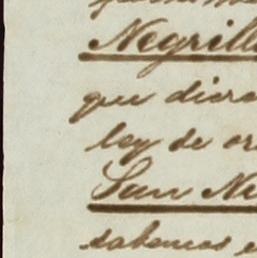 Negrill
que diera
ley de or
San Ne
sabemos e